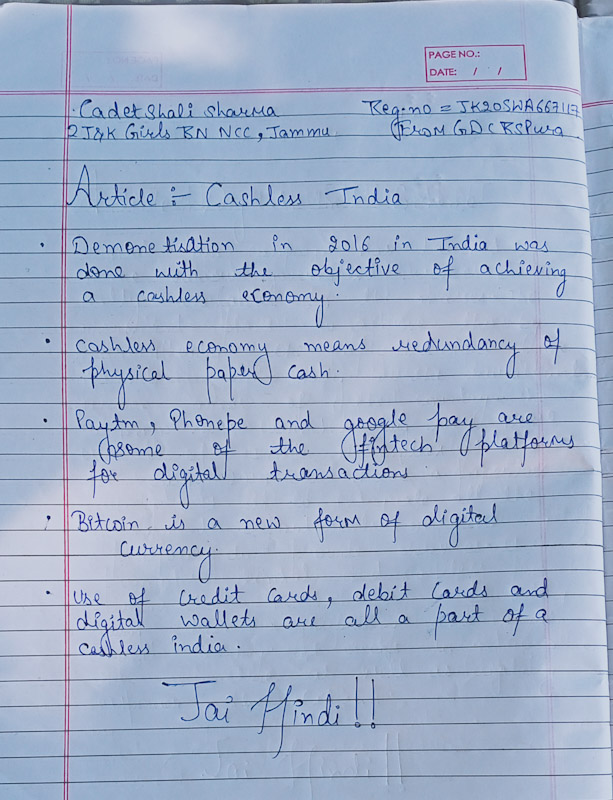 PAGE NO.:
DATE: / /
Cadet Shali Sharma Reg.no = JK20SWA667117
2 J&K Girls BN NCC, Jammu. From GDC RSPura
Article :- Cashless India
• Demonetisation in 2016 in India was
done with the objective of achieving
a cashless economy.
• cashless economy means redundancy of
physical paper cash.
• Paytm, Phonepe and google pay are
some of the fintech platforms
for digital transactions.
• Bitcoin is a new form of digital
currency.
• Use of credit cards, debit cards and
digital wallets are all a part of a
cashless india.
Jai Hindi!!